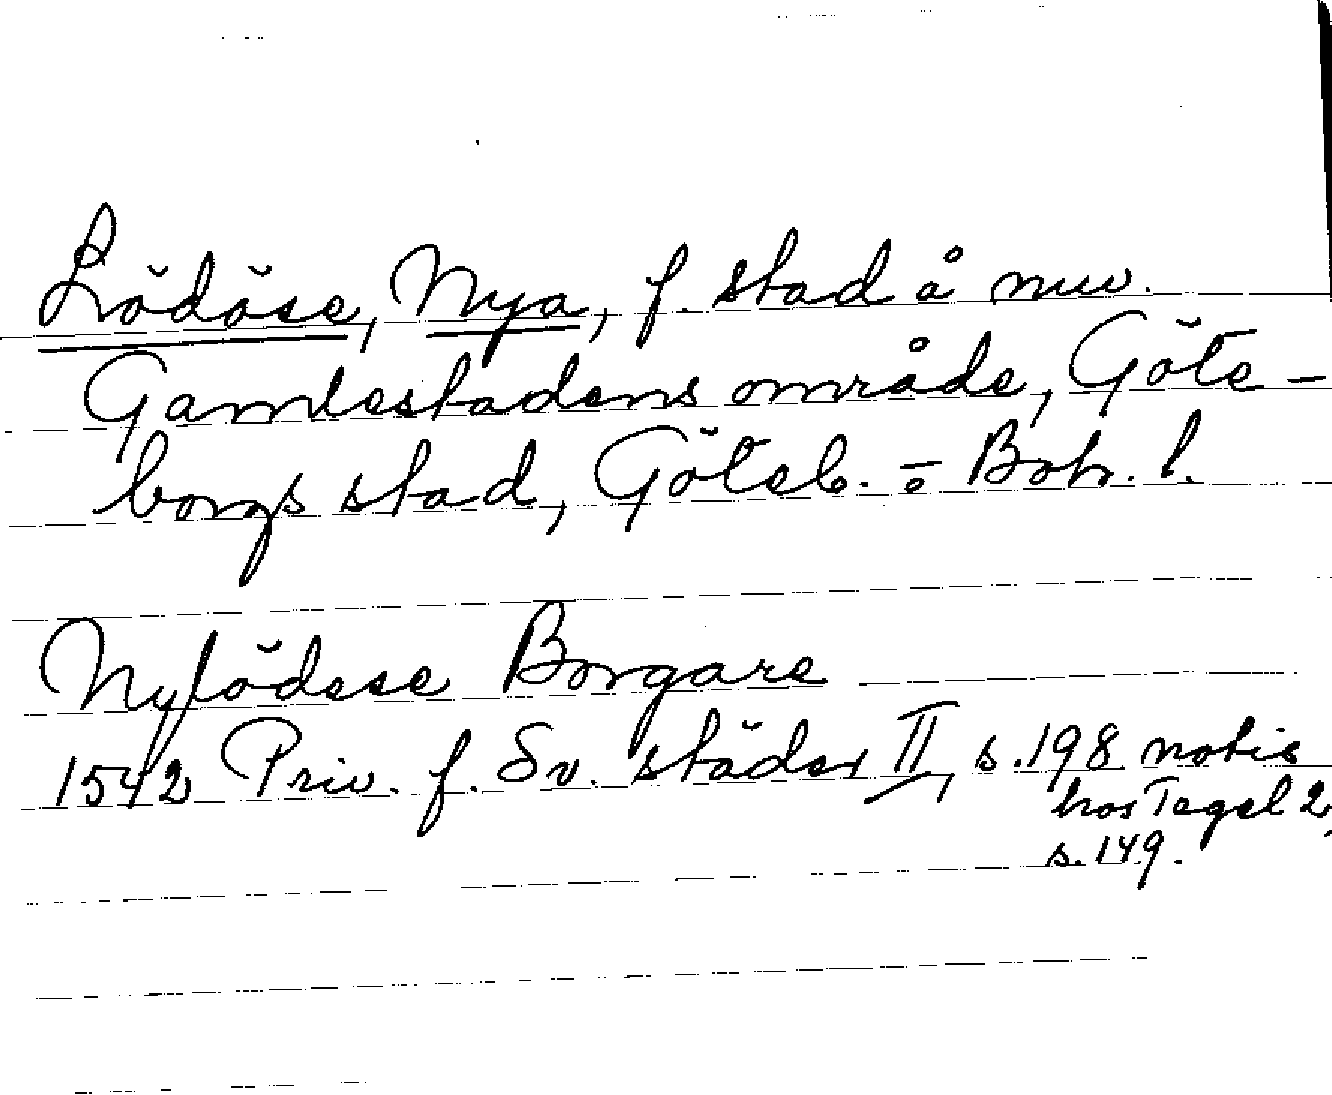 Lödöse, Nya, f. stad å nuv.
Gamlestadens område, Göte-
borgs stad, Göteb. o Boh. l.
Nylödese Borgare
1542 Priv. f. Sv. städer II, s. 198 notis
hos Tegel 2,
s. 149.